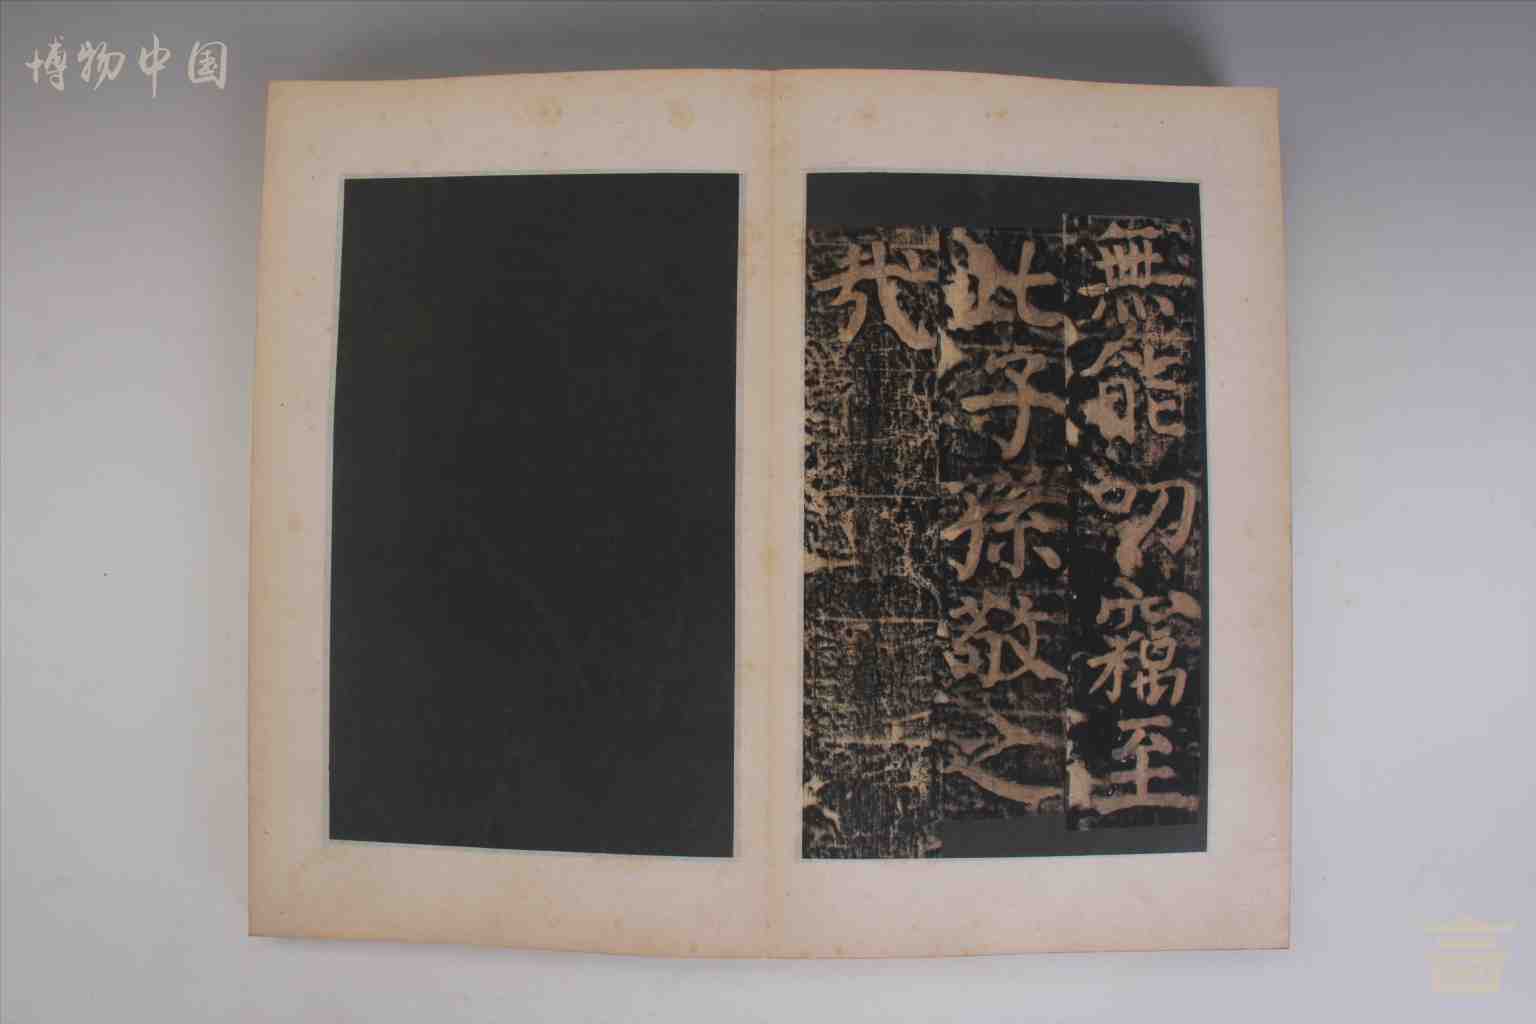 博物中国
無能叨竊至
此子孫敬之
哉